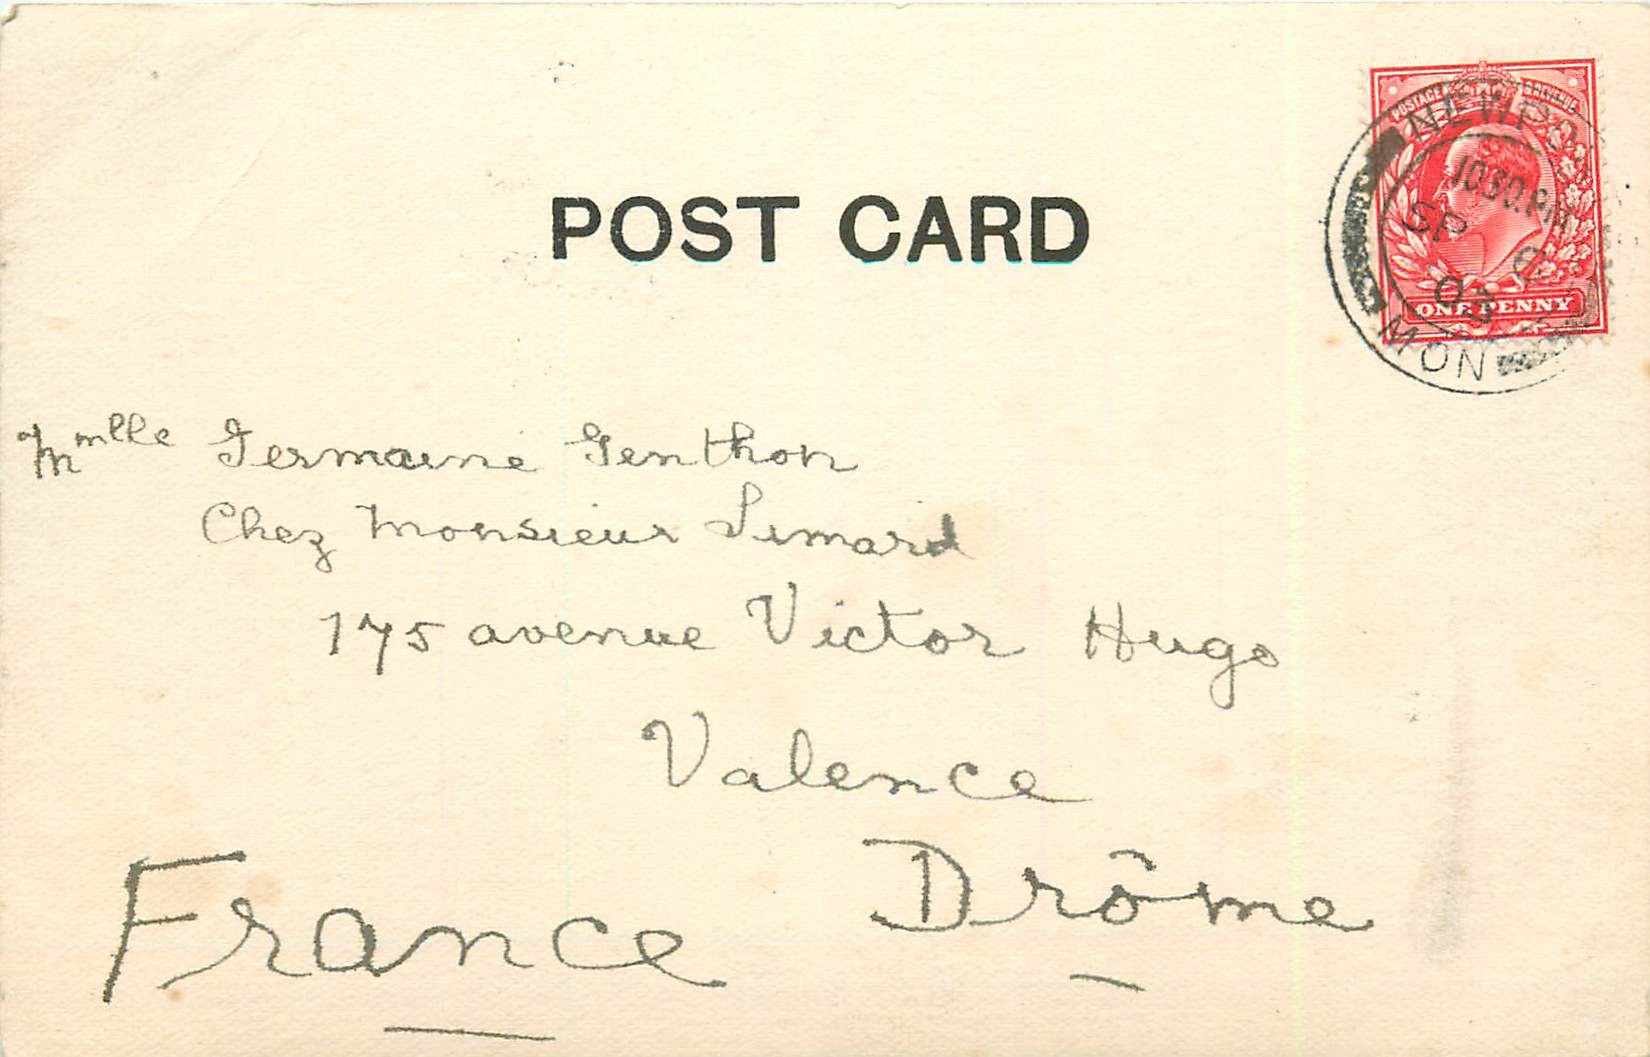 POSTAGE REVENUE
NEWPORT
10.30.PM
SP
03
ONE PENNY
MON
POST CARD
Mmlle Germaine Genthon
Chez Monsieur Simard
175 avenue Victor Hugo
Valence
Drôme
France